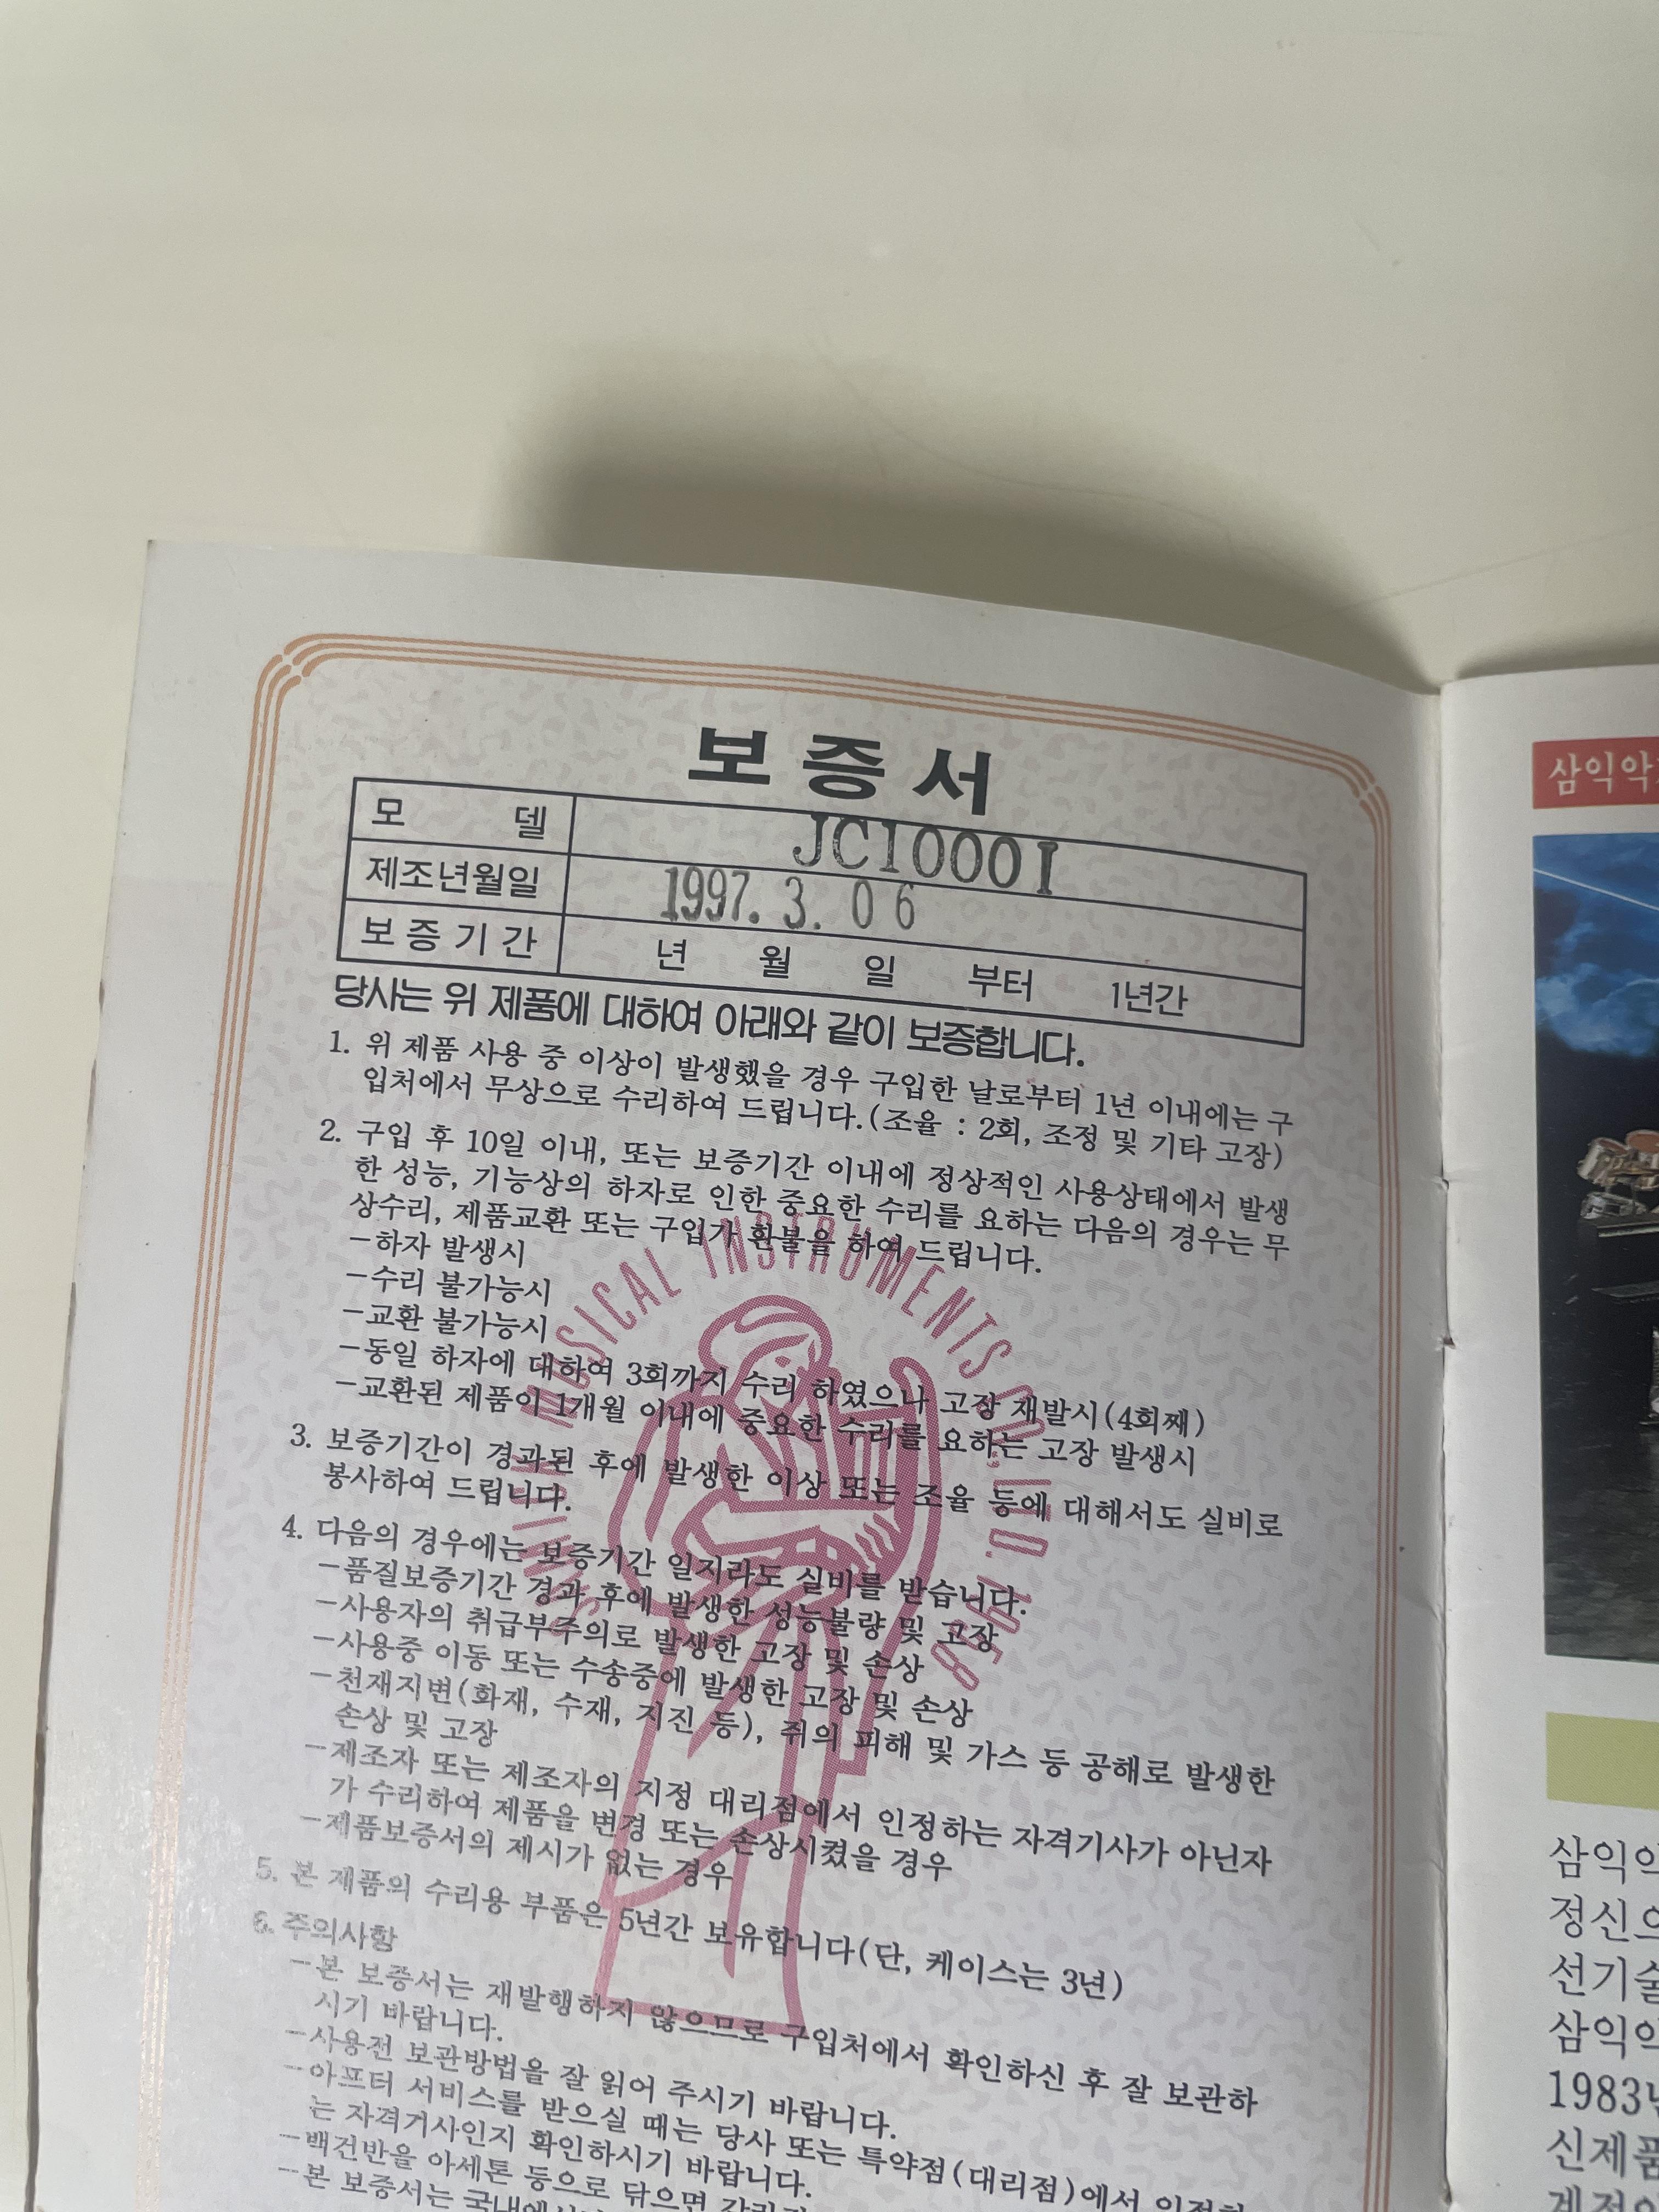 보증서
모 델 JC1000I
제조년월일 1997. 3. 06
보증기간 년 월 일 부터 1년간
당사는 위 제품에 대하여 아래와 같이 보증합니다.
1. 위 제품 사용 중 이상이 발생했을 경우 구입한 날로부터 1년 이내에는 구
입처에서 무상으로 수리하여 드립니다.(조율 : 2회, 조정 및 기타 고장)
2. 구입 후 10일 이내, 또는 보증기간 이내에 정상적인 사용상태에서 발생
한 성능, 기능상의 하자로 인한 중요한 수리를 요하는 다음의 경우는 무
상수리, 제품교환 또는 구입가 환불을 하여 드립니다.
-하자 발생시
-수리 불가능시
-교환 불가능시
-동일 하자에 대하여 3회까지 수리 하였으나 고장 재발시(4회째)
-교환된 제품이 1개월 이내에 중요한 수리를 요하는 고장 발생시
3. 보증기간이 경과된 후에 발생한 이상 또는 조율 등에 대해서도 실비로
봉사하여 드립니다.
4. 다음의 경우에는 보증기간 일지라도 실비를 받습니다.
-품질보증기간 경과 후에 발생한 성능불량 및 고장
-사용자의 취급부주의로 발생한 고장 및 손상
-사용중 이동 또는 수송중에 발생한 고장 및 손상
-천재지변(화재, 수재, 지진 등), 쥐의 피해 및 가스 등 공해로 발생한
손상 및 고장
-제조자 또는 제조자의 지정 대리점에서 인정하는 자격기사가 아닌자
가 수리하여 제품을 변경 또는 손상시켰을 경우
-제품보증서의 제시가 없는 경우
5. 본 제품의 수리용 부품은 5년간 보유합니다(단, 케이스는 3년)
6. 주의사항
-본 보증서는 재발행하지 않으므로 구입처에서 확인하신 후 잘 보관하
시기 바랍니다.
-사용전 보관방법을 잘 읽어 주시기 바랍니다.
-아프터 서비스를 받으실 때는 당사 또는 특약점(대리점)에서 인정하
는 자격거사인지 확인하시기 바랍니다.
-백건반을 아세톤 등으로 닦으면
-본 보증서는
MUSICAL INSTRUMENTS CO. LTD. 1958
삼익악
삼익악
정신으
선기술
삼익악
1983년
신제품